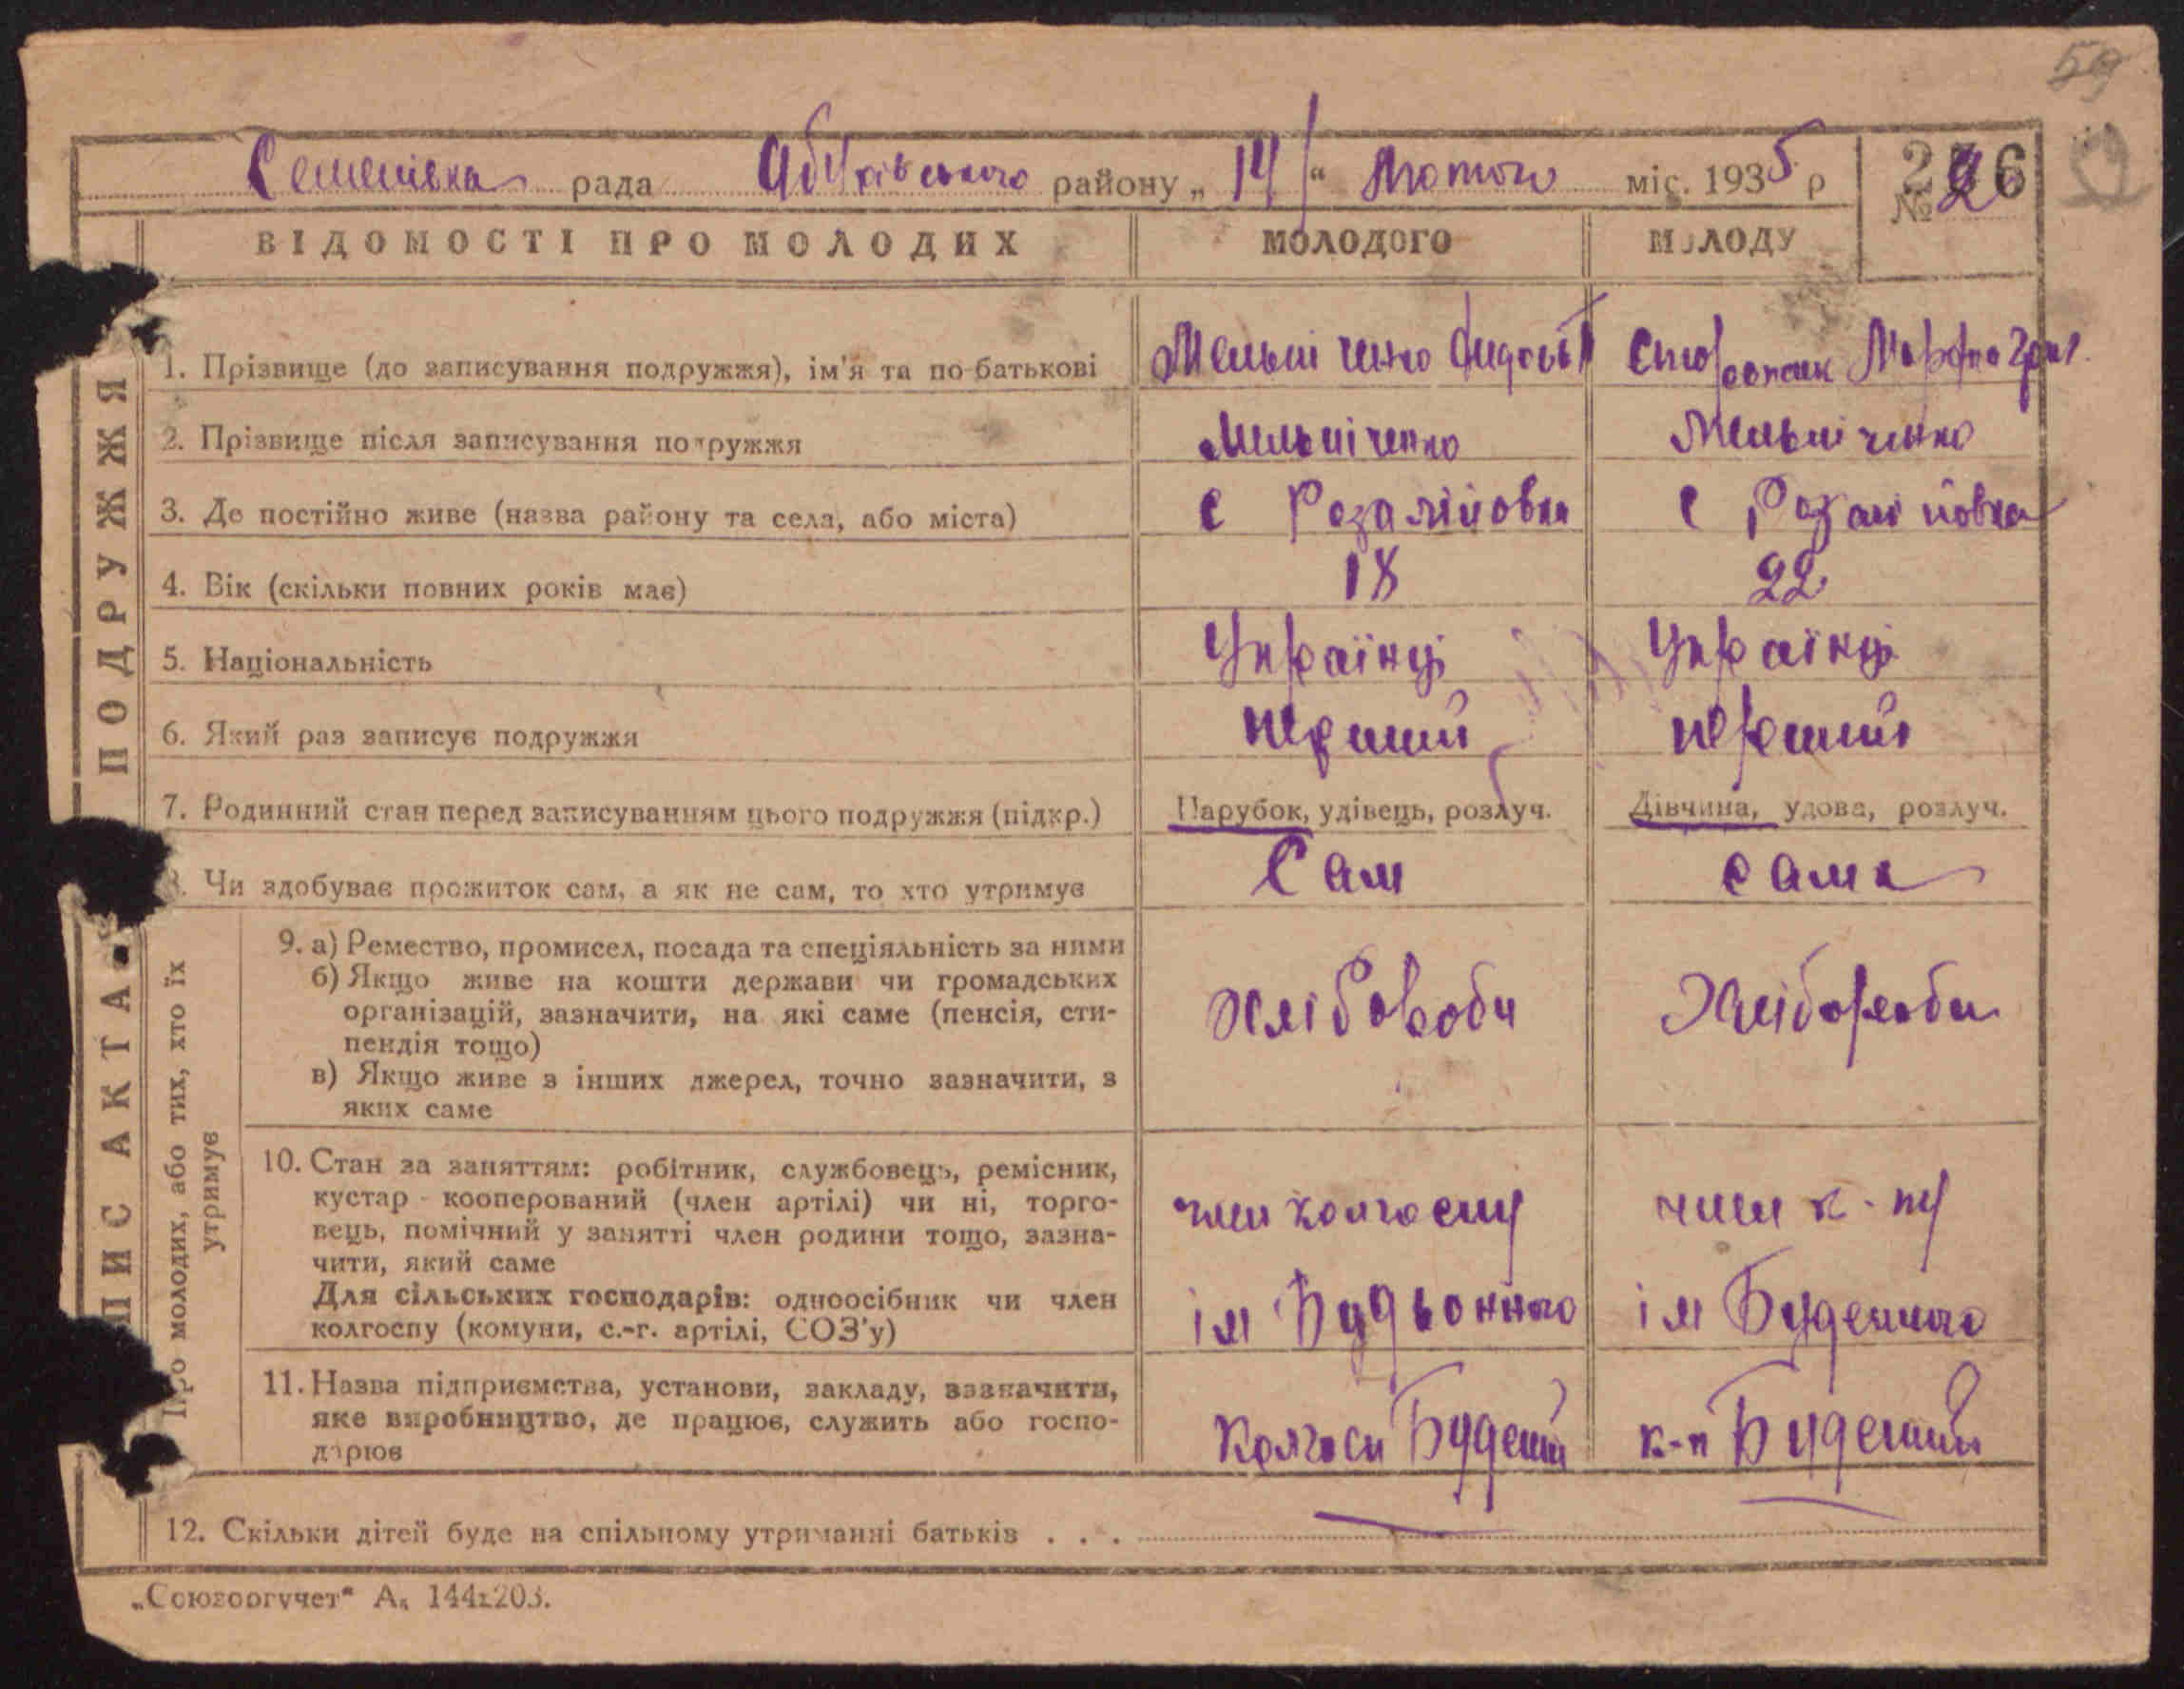 59
Семенівка рада Обухівського району „ 14 “ Лютого міс. 1935 р
№ 2 6
ВІДОМОСТІ ПРО МОЛОДИХ МОЛОДОГО МОЛОДУ
1. Прізвище (до записування подружжя), ім'я та по-батькові Мельніченко Марфа
2. Прізвище після записування подружжя Мельніченко Мельніченко
3. Де постійно живе (назва району та села, або міста) с Розалійовка с Розалійовка
4. Вік (скільки повних років має) 18 22
5. Національність Українці Українці
6. Який раз записує подружжя перший перший
7. Родинний стан перед записуванням цього подружжя (підкр.) Парубок, удівець, розлуч. Дівчина, удова, розлуч.
8. Чи здобуває прожиток сам, а як не сам, то хто утримує Сам сама
9. а) Ремество, промисел, посада та спеціяльність за ними
б) Якщо живе на кошти держави чи громадських
організацій, зазначити, на які саме (пенсія, сти-
пендія тощо)
хлібороби Хлібороби
в) Якщо живе з інших джерел, точно зазначити, з
яких саме
10. Стан за заняттям: робітник, службовець, ремісник,
кустар - кооперований (член артілі) чи ні, торго-
вець, помічний у занятті член родини тощо, зазна-
чити, який саме
член колгоспу член к-пу
Для сільських господарів: одноосібник чи член
колгоспу (комуни, с.-г. артілі, СОЗ'у)
ім Будьонного ім Буденного
11. Назва підприємства, установи, закладу, зазначити,
яке виробництво, де працює, служить або госпо-
дарює
Колгосп Будений к-п Будений
12. Скільки дітей буде на спільному утриманні батьків . . .
ПИС АКТА ПОДРУЖЖЯ
Про молодих, або тих, хто їх
утримує
„Союзоргучет“